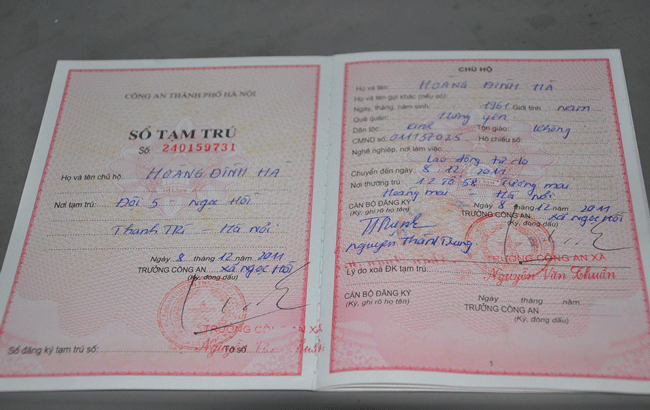 CÔNG AN THÀNH PHỐ HÀ NỘI
SỔ TẠM TRÚ
Số: 240159731
Họ và tên chủ hộ: HOÀNG ĐÌNH HÀ
Nơi tạm trú: Đội 5 - Ngọc Hồi
Thanh Trì - Hà Nội
Ngày 8 tháng 12 năm 2011
TRƯỞNG CÔNG AN xã Ngọc Hồi
(Ký, đóng dấu)
TRƯỞNG CÔNG AN XÃ
Nguyễn
Sổ đăng ký tạm trú số: Tờ số
CHỦ HỘ
Họ và tên: HOÀNG ĐÌNH HÀ
Họ và tên gọi khác (nếu có):
Ngày, tháng, năm sinh: 1961 Giới tính: nam
Quê quán: Hưng Yên
Dân tộc: Kinh Tôn giáo: Không
CMND số: 011157025 Hộ chiếu số:
Nghề nghiệp, nơi làm việc:
Lao động tự do
Chuyển đến ngày 8 . 12 . 2011
Nơi thường trú: 12 Tổ 58 Tương mai
Hoàng mai Hà Nội
Ngày 8 tháng 12 năm 2011
CÁN BỘ ĐĂNG KÝ TRƯỞNG CÔNG AN xã Ngọc Hồi
(Ký, ghi rõ họ tên) (Ký, đóng dấu)
Nguyễn Thành Trung
TRƯỞNG CÔNG AN XÃ
Lý do xoá ĐK tạm trú: Nguyễn Văn Thuần
Ngày tháng năm
CÁN BỘ ĐĂNG KÝ TRƯỞNG CÔNG AN
(Ký, ghi rõ họ tên) (Ký, đóng dấu)